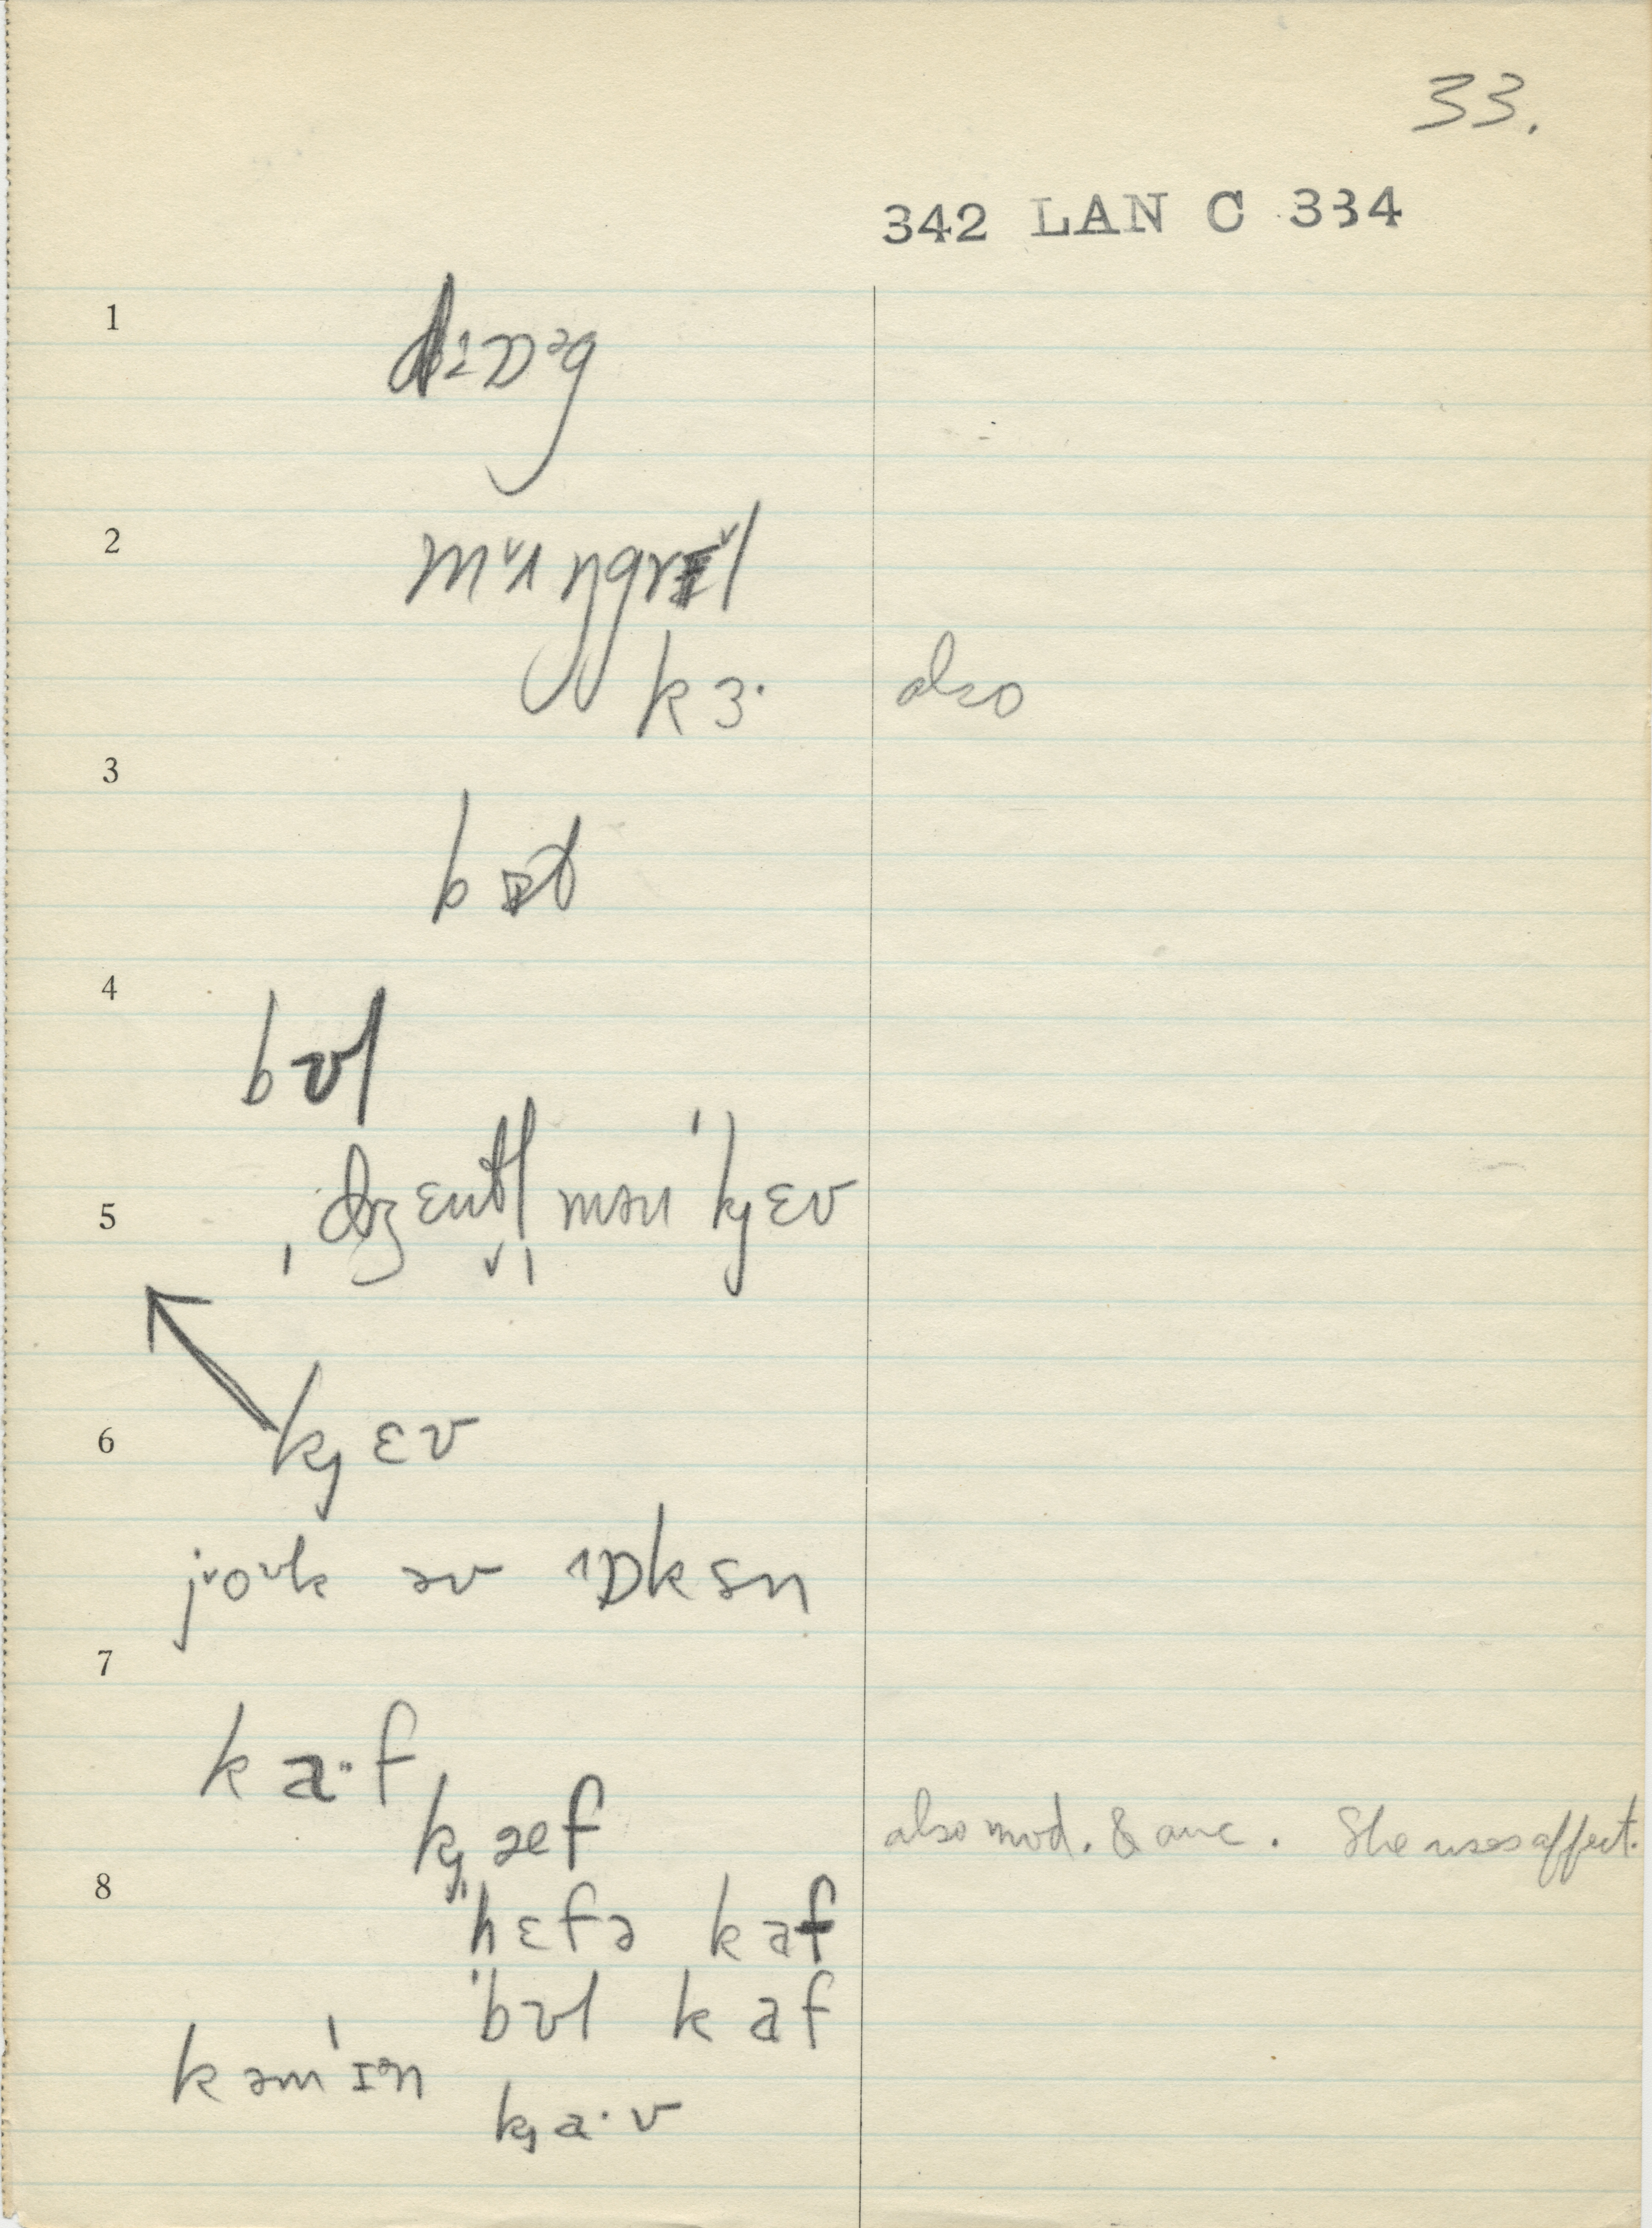 33.
342 LAN C 334
1
2
mʌŋgrɪ̆l
kɜ· also
3
4
bʊl
5 ˌdʒɛntl̩mən ˈkjɛv
6 kjɛv
joᵛk əv ɒksn
7
ka·f
kjæf also mod. & anc. She uses affect.
8
ˈhɛfə kaf
ˈbʊl kaf
kəmˈɪᵊn
kja·v